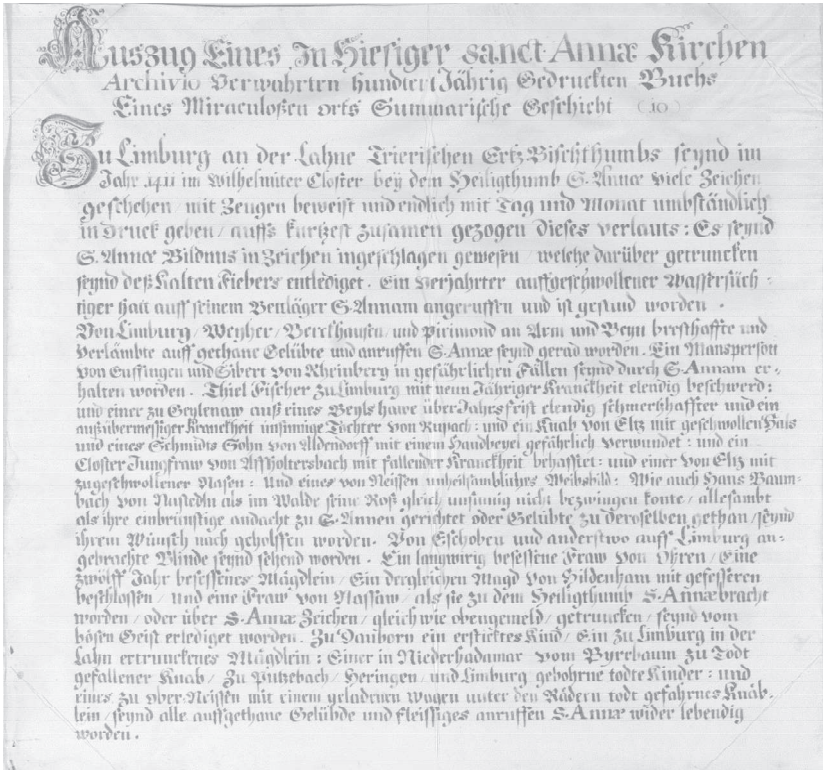 Auszug Eines In Hiesiger sanct Annæ Kirchen
Archivio Verwahrten hundert Jährig Gedruckten Buchs
Eines Miraculoßen orts Summarische Geschicht (10)
Zu Limburg an der Lahne Trierischen Ertz Bischthumbs seynd im
Jahr 1411 im Wilhelmiter Closter bey dem Heiligthumb S. Annæ viele Zeichen
geschehen / mit Zeugen beweist und endlich mit Tag und Monat umbständlich
in Druck geben / auffs kurtzest zusamen gezogen dieses verlauts: Es seynd
S. Annæ Bildnus in Zeichen ingeschlagen gewesen / welche darüber getruncken
seynd deß Kalten Fiebers entlediget. Ein Verjahrter auffgeschwollener Wassersüch-
tiger hatt auff seinem Bettläger S. Annam angeruffen und ist gesund worden.
Von Limburg / Weyher / Berckhausen / und Pirimond an Arm und Beyn bresthaffte und
Verlämbte auff gethane Gelübte und anruffen S. Annæ seynd gerad worden. Ein Mansperson
von Guffingen und Sibert von Rheinberg in gefährlichen Fällen seynd durch S. Annam er-
halten worden. Thiel Fischer zu Limburg mit neun Jähriger Kranckheit elendig beschwerd:
und einer zu Geylenaw auß eines Beyls hawe über Jahrs frist elendig schmertzhaffter und ein
außübermessiger Kranckheit unsinnige Tochter von Rupach: und ein Knab von Eltz mit geschwollen Hals
und eines Schmidts Sohn von Aldendorff mit einem Handbeyel gefährlich verwundet: und ein
Closter Jungfraw von Affholtersbach mit fallender Kranckheit behafftet: und einer von Eltz mit
zugeschwollener Nasen: Und eines von Neissen unheilsambliches Weibsbild: Wie auch Hans Baum-
bach von Nastedtn als im Walde seine Roß gleich unsinnig nicht bezwingen konte / allesambt
als ihre einbrünstige andacht zu S. Annen gerichtet oder Gelübte zu deroselben gethan / seynd
ihrem Wunsch nach geholffen worden. Von Eschoben und anderstwo auff Limburg an-
gebrachte Blinde seynd sehend worden. Ein langwirig besessene Fraw von Ohren / Eine
zwölff Jahr besessenes Mägdlein / Ein dergleichen Magd von Hildenham mit gefesseren
beschlossen / und eine Fraw von Nassaw / als sie zu dem Heiligthumb S. Annæ bracht
worden / oder über S. Annæ Zeichen / gleich wie obengemeld / getruncken / seynd vom
bösen Geist erlediget worden. Zu Dauborn ein ersticktes Kind / Ein zu Limburg in der
Lahn ertrunckenes Mägdlein: Einer in Niederhadamar vom Byrrbaum zu Todt
gefallener Knab / Zu Pützbach / Heringen / und Limburg gebohrne todte Kinder: und
eines zu ober-Neissen mit einem geladenen Wagen unter den Rädern todt gefahrnes Knäb-
lein / seynd alle auffgethane Gelübde und fleissiges anruffen S. Annæ wider lebendig
worden.